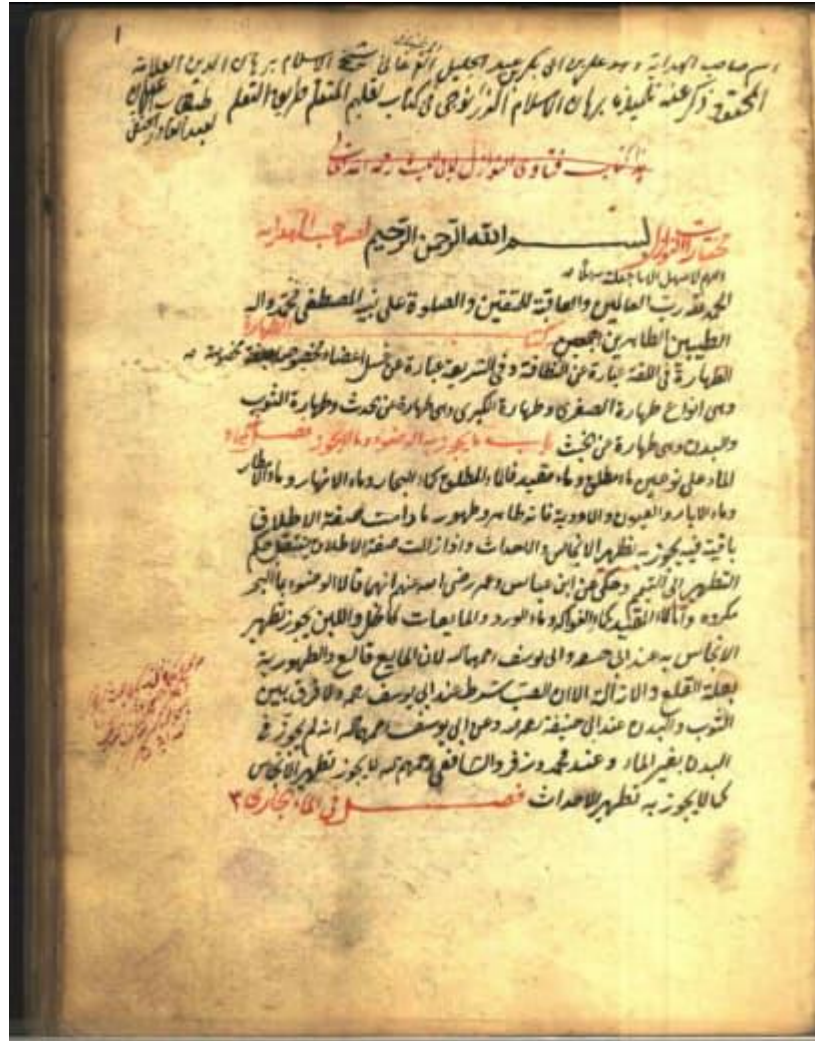 اسم صاحب الهداية وهو علي بن ابي بكر بن عبد الجليل الفرغاني شيخ الاسلام برهان الدين العلامة
المحقق ذكر عنه تلميذه برهان الاسلام الزرنوجي في كتاب تعليم المتعلم طريق التعلم طبقات
لعبد القادر الحنفي
كتاب فتاوى النوازل لابي الليث رحمه الله تعالى
مختارات النوازل لصاحب الهداية
بسم الله الرحمن الرحيم
اللهم لا سهل الا ما جعلته سهلا
الحمد لله رب العالمين والعاقبة للمتقين والصلوة على نبيه المصطفى محمد واله
الطيبين الطاهرين اجمعين كتاب الطهارة
الطهارة في اللغة عبارة عن النظافة وفي الشريعة عبارة عن غسل اعضاء مخصوصة بصفة مخصوصة
وهى انواع طهارة الصغرى وطهارة الكبرى وهى طهارة عن الحدث وطهارة الثوب
والبدن وهى طهارة عن الخبث باب ما يجوز به الوضوء وما لا يجوز فصل
الماء على نوعين ماء مطلق وماء مقيد فالماء المطلق كماء البحار وماء الانهار وماء الامطار
وماء الابار والعيون والاودية فانه طاهر وطهور ما دامت صفة الاطلاق
باقية فيه يجوز به تطهير الانجاس والاحداث واذا زالت صفة الاطلاق ينتقل حكم
التطهير الى التيمم وحكى عن ابن عباس وعمر رضى الله عنهم انهما قالا الوضوء بالبحر
مكروه وأما الماء المقيد كماء الفواكه وماء الورد والمايعات كالخل واللبن يجوز تطهير
الانجاس به عند ابى ح وابى يوسف رحمهما الله لان المايع قالع والطهورية
بعلة القلع والازالة الا ان الصب شرط عند ابى يوسف رحمه ولا فرق بين
الثوب والبدن عند ابى حنيفة رحمه الله وعن ابى يوسف رحمه الله انه لم يجوز فى
البدن بغير الماء وعند محمد وزفر والشافعى رحمهم الله لا يجوز تطهير الانجاس
كما لا يجوز به تطهير الاحداث فصل فى الماء الجارى ٣